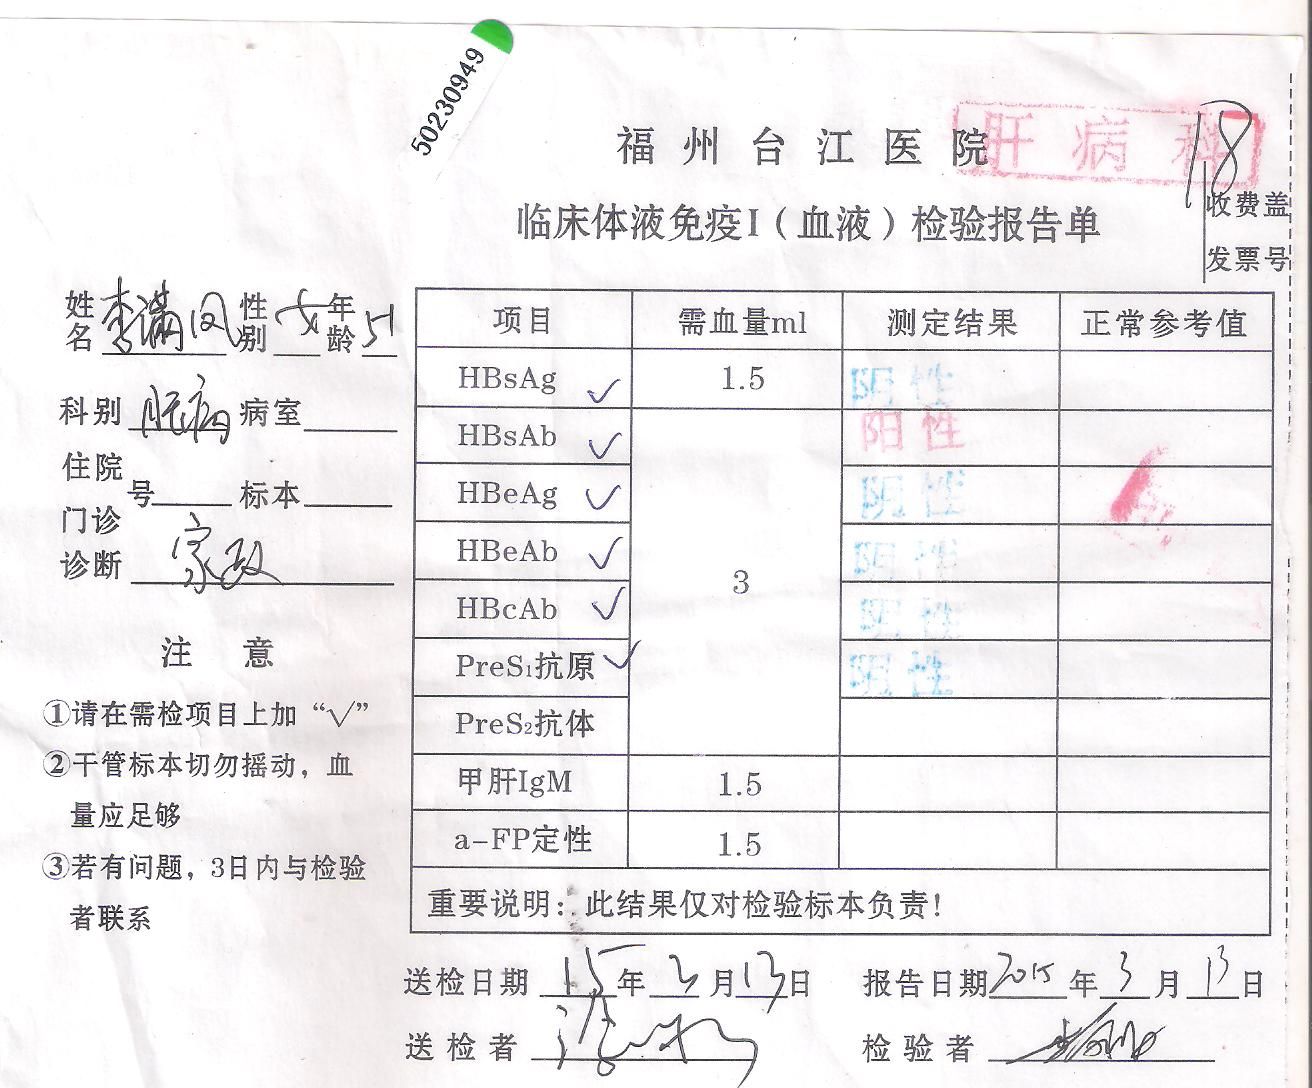 50230949
福州台江医院
肝病科
18
临床体液免疫I（血液）检验报告单
收费盖
发票号
姓名 李满凤 性别 女 年龄 51
科别 肝病 病室
住院号 标本
门诊
诊断 家政
注 意
①请在需检项目上加“√”
②干管标本切勿摇动，血
量应足够
③若有问题，3日内与检验
者联系
项目 需血量ml 测定结果 正常参考值
HBsAg ✓ 1.5 阴性
HBsAb ✓ 阳性
HBeAg ✓ 阴性
HBeAb ✓ 3 阴性
HBcAb ✓ 阴性
PreS₁抗原 ✓ 阴性
PreS₂抗体
甲肝IgM 1.5
a-FP定性 1.5
重要说明：此结果仅对检验标本负责！
送检日期 15年3月13日 报告日期 2015年3月13日
送检者 检验者